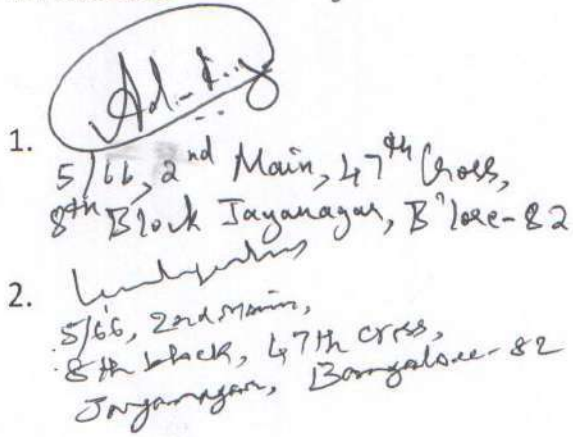 1.
5/66, 2nd Main, 47th Cross,
8th Block Jayanagar, B'lore-82
2.
5/66, 2nd Main,
8th block, 47th cross,
Jayanagar, Bangalore-82